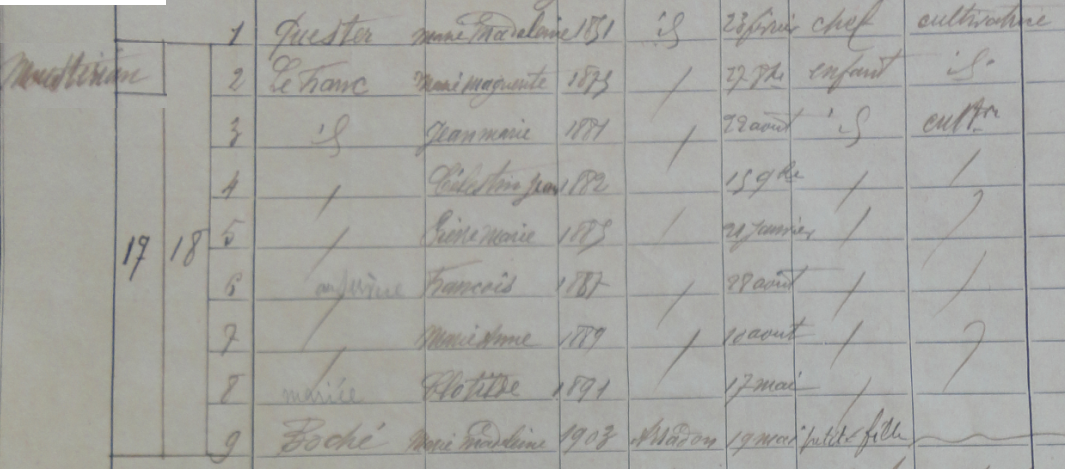 1 Quester Marie Madeleine 1851 id 23 février chef cultivatrice
2 Le Franc Marie Marguerite 1875 / 27 enfant id
3 id Jean Marie 1881 / 22 août id cultre
4 / Célestin Jean 1882 15 9bre / /
17 18 5 / Pierre Marie 1885 / 21 Janvier / /
6 / François 1887 / 28 août / /
7 / Marie Anne 1889 / 10 août / /
8 mariée / Clotilde 1891 / 17 mai / /
9 Boché Marie Madeleine 1903 Arradon 19 mai petite fille